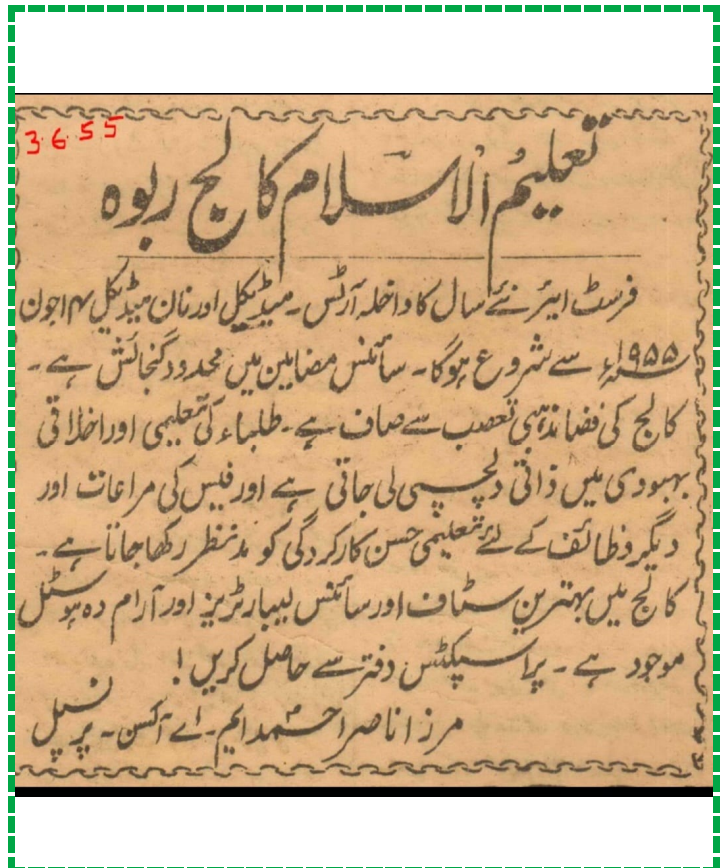 3.6.55
تعلیمُ الاسلام کالج ربوہ
فرسٹ ایئر نئے سال کا داخلہ آرٹس۔ میڈیکل اور نان میڈیکل ۱۴ جون
۱۹۵۵ء سے شروع ہوگا۔ سائنس مضامین میں محدود گنجائش ہے۔
کالج کی فضا مذہبی تعصب سے صاف ہے۔ طلباء کی تعلیمی اور اخلاقی
بہبودی میں ذاتی دلچسپی لی جاتی ہے اور فیس کی مراعات اور
دیگر وظائف کے لئے تعلیمی حسن کارکردگی کو مدنظر رکھا جاتا ہے۔
کالج میں بہترین سٹاف اور سائنس لیبارٹریز اور آرام دہ ہوسٹل
موجود ہے۔ پراسپکٹس دفتر سے حاصل کریں!
مرزا ناصر احمد ایم۔ اے آکسن۔ پرنسپل